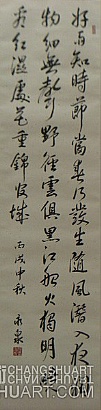 好雨知時節當春乃發生随風潛入夜潤
物細無聲野徑雲俱黑江船火獨明曉
看紅濕處花重錦官城
丙戌中秋
CHANGSHUART.COM